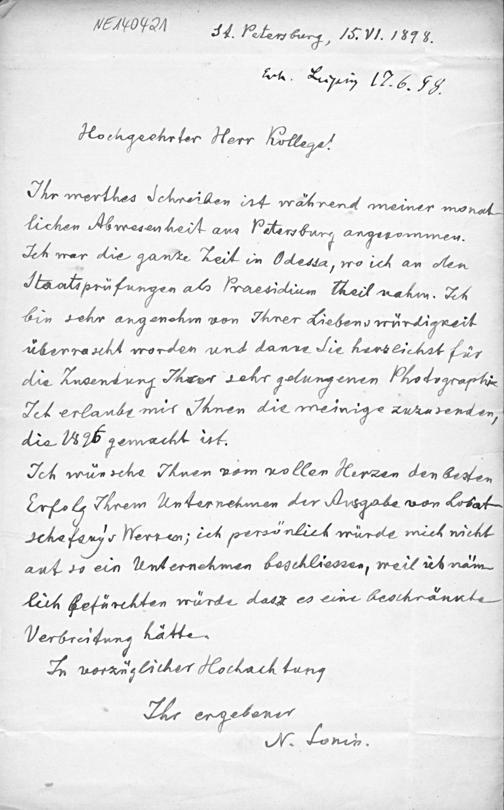 NE140421
St. Petersburg, 15.VI.1898.
Erh. Leipzig 17.6.98.
Hochgeehrter Herr Kollege!
Ihr werthes Schreiben ist während meiner monat
lichen Abwesenheit aus Petersburg angekommen.
Ich war die ganze Zeit in Odessa, wo ich an den
Staatsprüfungen als Praesidium theil nahm. Ich
bin sehr angenehm von Ihrer Liebenswürdigkeit
überrascht worden und danke Sie herzlichst für
die Zusendung Ihrer sehr gelungenen Photographie
Ich erlaube mir Ihnen die meinige zuzusenden,
die 1896 gemacht ist.
Ich wünsche Ihnen vom vollen Herzen den besten
Erfolg Ihrem Unternehmen der Ausgabe von Lobat
schefsky's Werken; ich persönlich würde mich nicht
auf so ein Unternehmen beschliessen, weil ich näm
lich befürchten würde dasz es eine beschränkte
Verbreitung hätte.
In vorzüglicher Hochachtung
Ihr ergebener
N. Sonin.